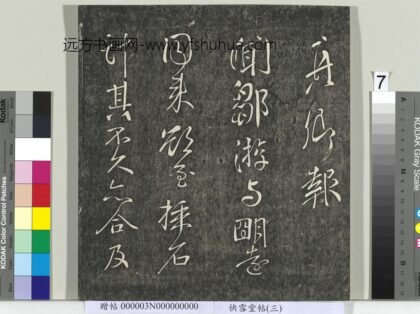 真卿報
聞鄒游与明遠
同來欲至採石
計其不久亦合及
远方书画网-www.yfshuhua.com
7
KODAK Color Control Patches
Kodak
KODAK Gray Scale
A
M
贈帖 000003N000000000 快雪堂帖(三)